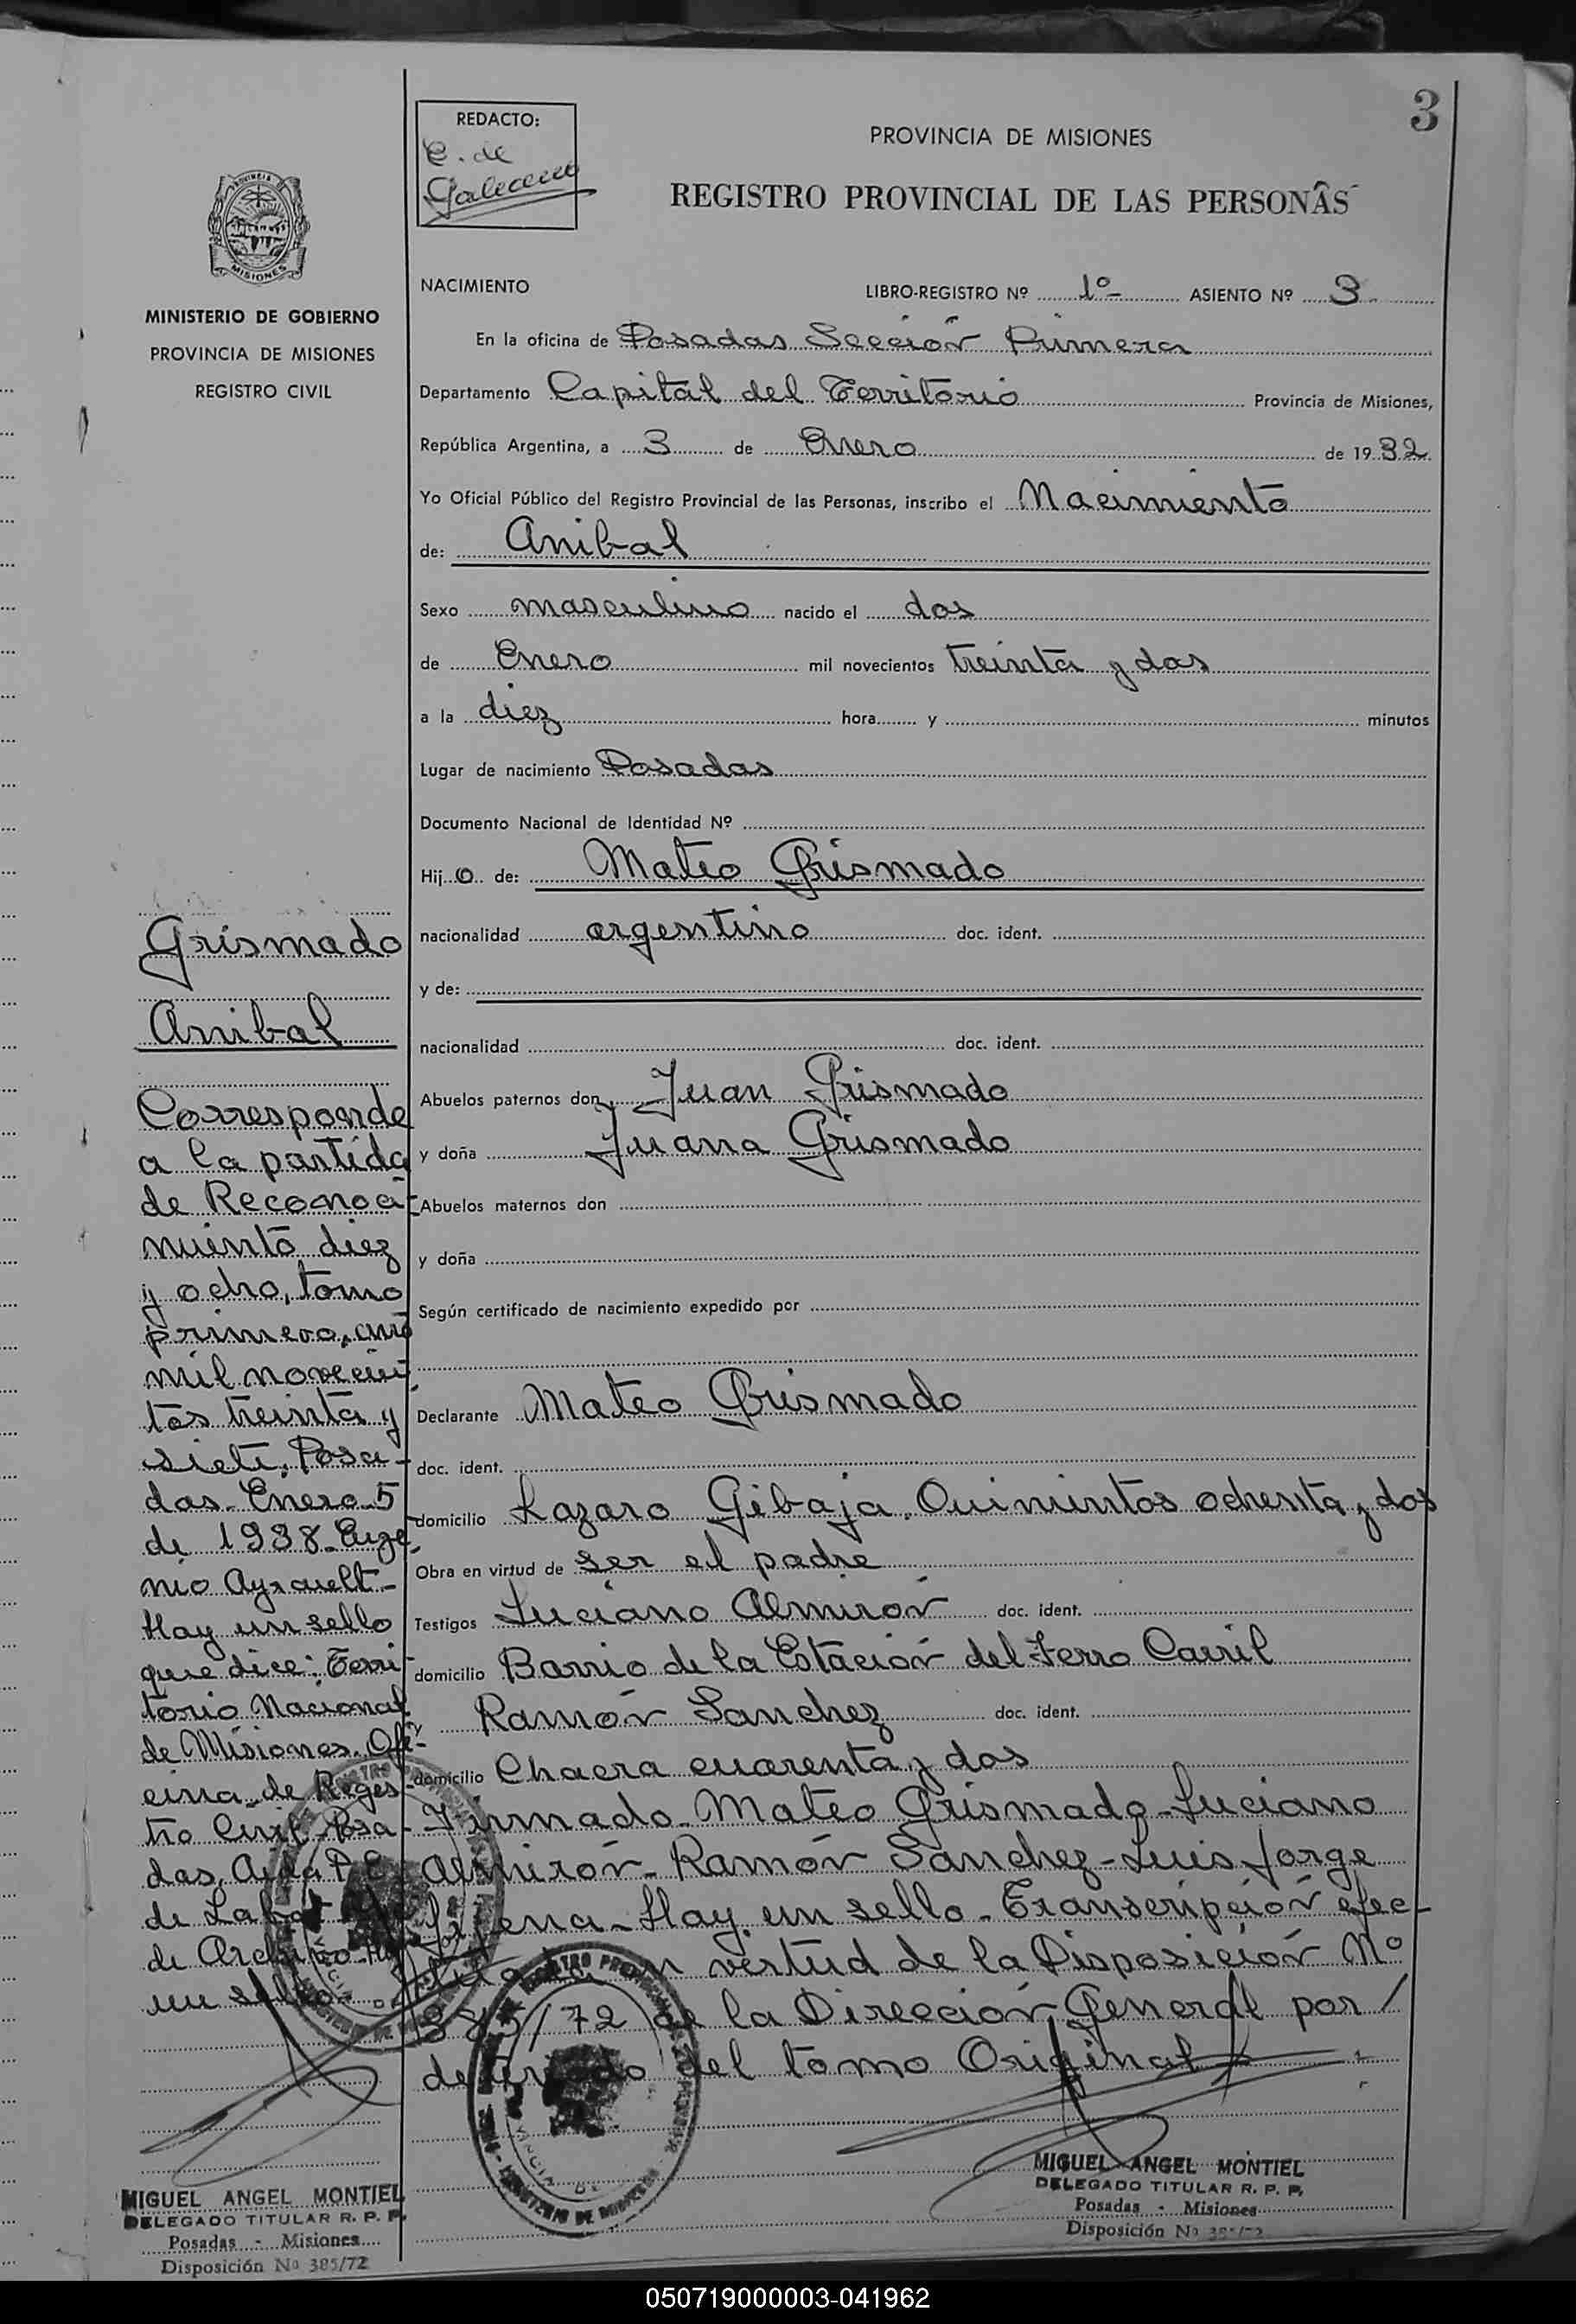 3
REDACTO:
E. de
PROVINCIA DE MISIONES
REGISTRO PROVINCIAL DE LAS PERSONAS
PROVINCIA DE
MISIONES
MINISTERIO DE GOBIERNO
PROVINCIA DE MISIONES
REGISTRO CIVIL
NACIMIENTO LIBRO-REGISTRO Nº 1º ASIENTO Nº 3
En la oficina de Posadas Sección Primera
Departamento Capital del Territorio Provincia de Misiones,
República Argentina, a 3 de Enero de 1932
Yo Oficial Público del Registro Provincial de las Personas, inscribo el Nacimiento
de: Anibal
Sexo masculino nacido el dos
de Enero mil novecientos treinta y dos
a la diez hora y minutos
Lugar de nacimiento Posadas
Documento Nacional de Identidad Nº
Hij o de: Mateo Grismado
nacionalidad argentino doc. ident.
y de:
nacionalidad doc. ident.
Abuelos paternos don Juan Grismado
y doña Juana Grismado
Abuelos maternos don
y doña
Según certificado de nacimiento expedido por
Declarante Mateo Grismado
doc. ident.
domicilio Lazaro Gibaja. Quinientos ochenta y dos
Obra en virtud de ser el padre
Testigos Luciano Almirón doc. ident.
domicilio Barrio de la Estación del Ferro Carril
y Ramón Sanchez doc. ident.
domicilio Chacra cuarenta y dos
Firmado-Mateo Grismado-Luciano
Almirón-Ramón Sanchez-Luis Jorge
Hay un sello-Transcripción efec-
virtud de la Disposición Nº
385/72 de la Dirección General por/
deterioro del tomo Original
MIGUEL ANGEL MONTIEL
DELEGADO TITULAR R. P. P.
Posadas - Misiones
Disposición Nº 385/72
Grismado
Anibal
Corresponde
a la partida
de Reconoci-
miento diez
y ocho, tomo
primero, año
mil novecien-
tos treinta y
siete. Posa-
das-Enero-5
de 1938-Euge-
nio Ayrault-
Hay un sello
que dice: Terri-
torio Nacional
de Misiones. Ofi-
cina de Regis-
tro Civil-Posa-
das,
de
de Archivo-Hay
un sello
MIGUEL ANGEL MONTIEL
DELEGADO TITULAR R. P. P.
Posadas - Misiones
Disposición Nº 385/72
050719000003-041962